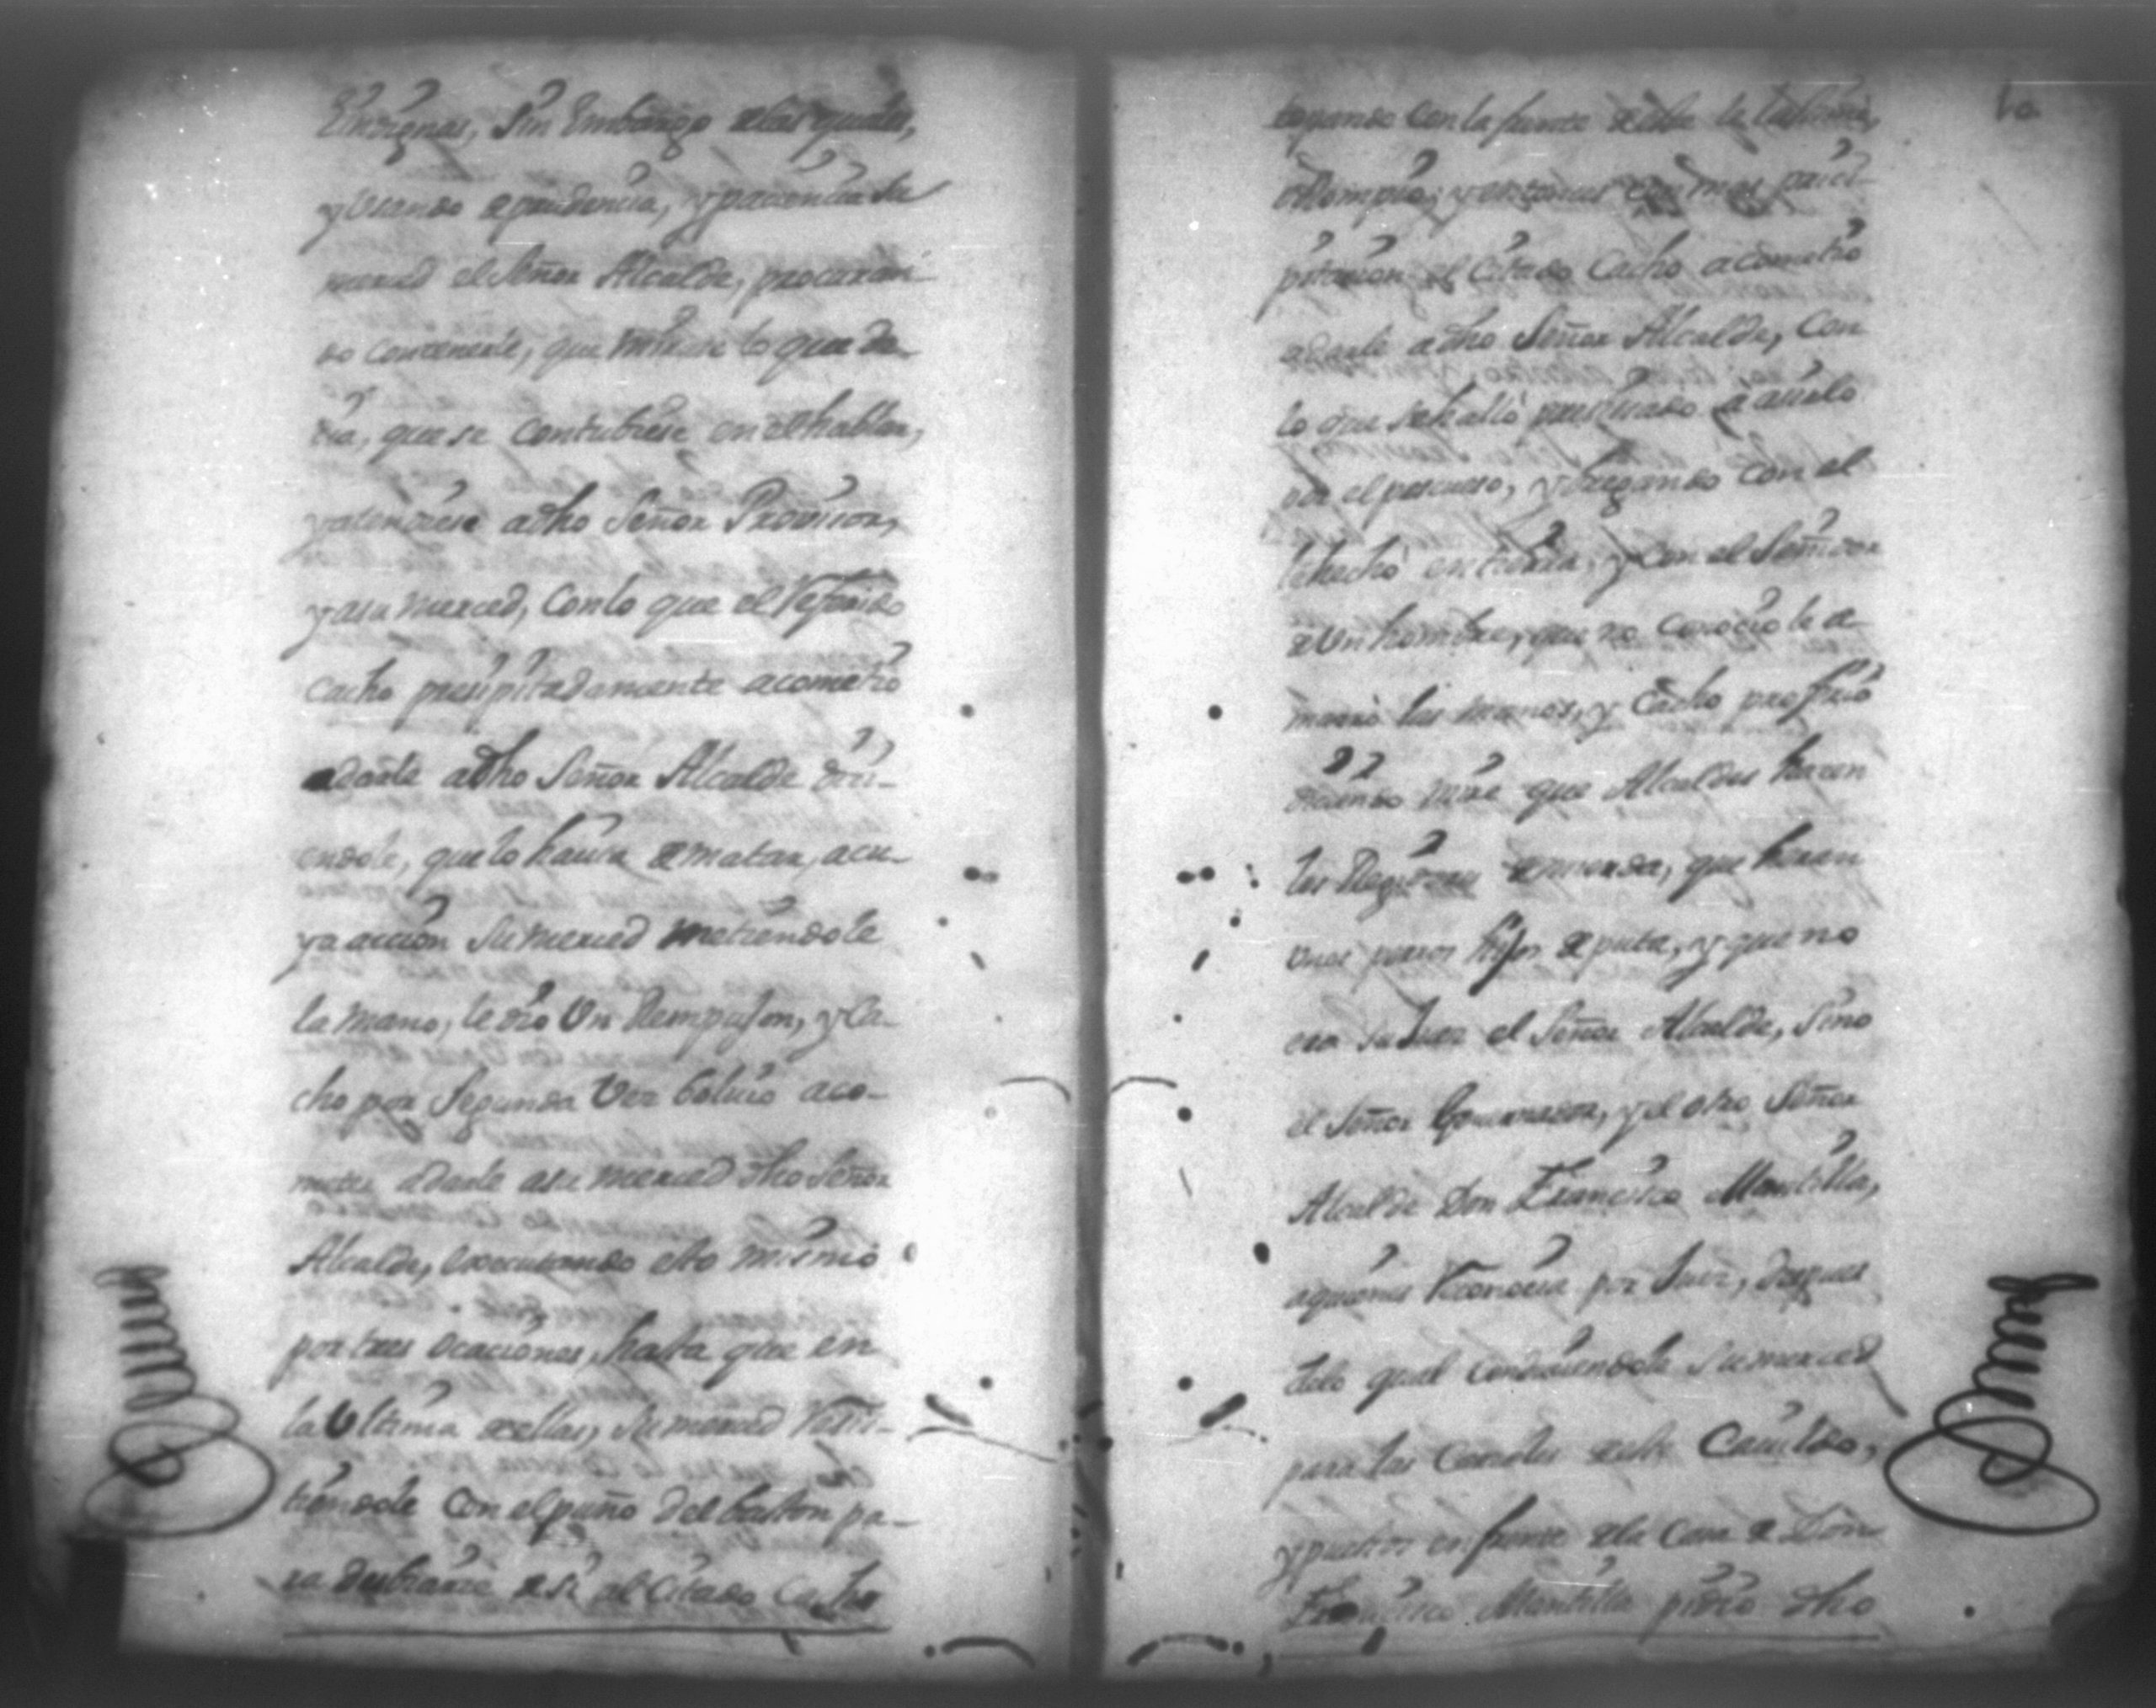 Ensignas, Sin Embargo de las quales,
y Usando de prudencia, y paciencia su
merced el Señor Alcalde, procuran-
do contenerle, que mirase lo que de-
cia, que se contubiese en el hablar,
y atendiese a dho Señor Provisor,
y a su merced, Con lo que el Referido
Cacho presipitadamente acometio
a darle a dho Señor Alcalde dici-
endole, que lo havia de matar, a cu-
ya accion Su merced metiendole
la mano, le dio Un Rempujon, y Ca-
cho por Segunda Vez bolvio aco-
meter a darle a su merced dho Señor
Alcalde, executando esto mismo
por tres ocaciones, hasta que en
la Ultima de ellas, Su merced
con el puño del baston pa-
ra de si al Citado Cacho
10
topando con la frente de este
rrompio; y entonces con mas preci-
pitacion el Citado Cacho acometio
a darle a dho Señor Alcalde, Con
lo que se hallò precisado a
por el pescueso, y bregando con el
le hechò en tierra, y con el Señidor
de Un hombre, que no Conocio le a-
marrò las manos, y Cacho profirio
diciendo mire que Alcaldes hacen
los Regidores de mierda, que heran
unos perros hijos de puta, y que no
era su Juez el Señor Alcalde, Sino
el Señor Governador, y el otro Señor
Alcalde Don Francisco Mantilla,
a quienes Reconocia por Juez, despues
delo qual Conduciendole Su merced
para las Carceles de este Cavildo,
y puestos en frente de la Casa de Don
Francisco Mantilla pidio dho